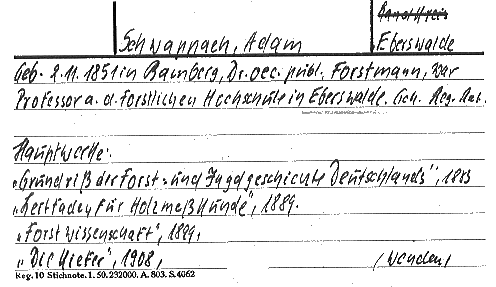 Schwappach, Adam
Eberswalde
Geb. 2.11.1851 in Bamberg, Dr. oec. publ. Forstmann, war
Professor a. d. Forstlichen Hochschule in Eberswalde. Geh. Reg. Rat.
Hauptwerke:
„Grundriß der Forst- und Jagdgeschichte Deutschlands", 1883
„Leitfaden für Holzmeßkunde", 1889.
„Forstwissenschaft", 1899,
„Die Kiefer", 1908,
(wenden)
Reg. 10 Stichnote. 1. 50. 232000. A. 803. S. 4062